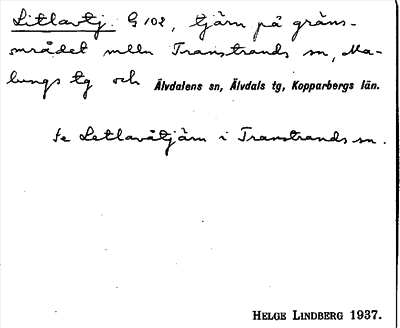 Litlavtj. G 102, tjärn på gräns-
området mlln Transtrands sn, Ma-
lungs tg och Älvdalens sn, Älvdals tg, Kopparbergs län.
Se Letlavåtjärn i Transtrands sn.
HELGE LINDBERG 1937.